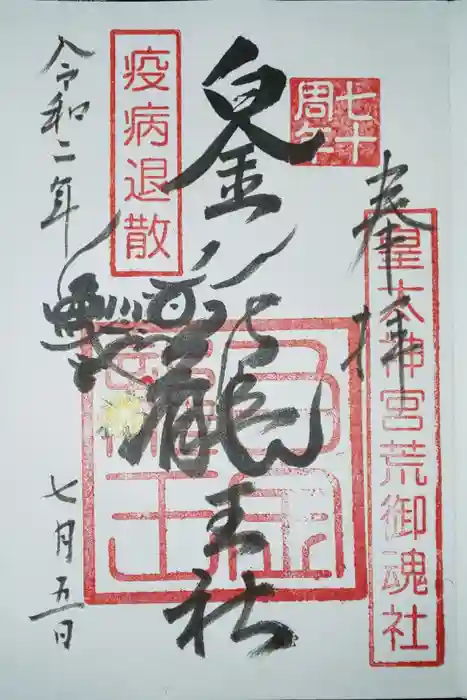 奉拝
皇大神宮荒御魂社
七十
周年
白金龍王社
白金
龍王
疫病退散
令和二年
七月五日